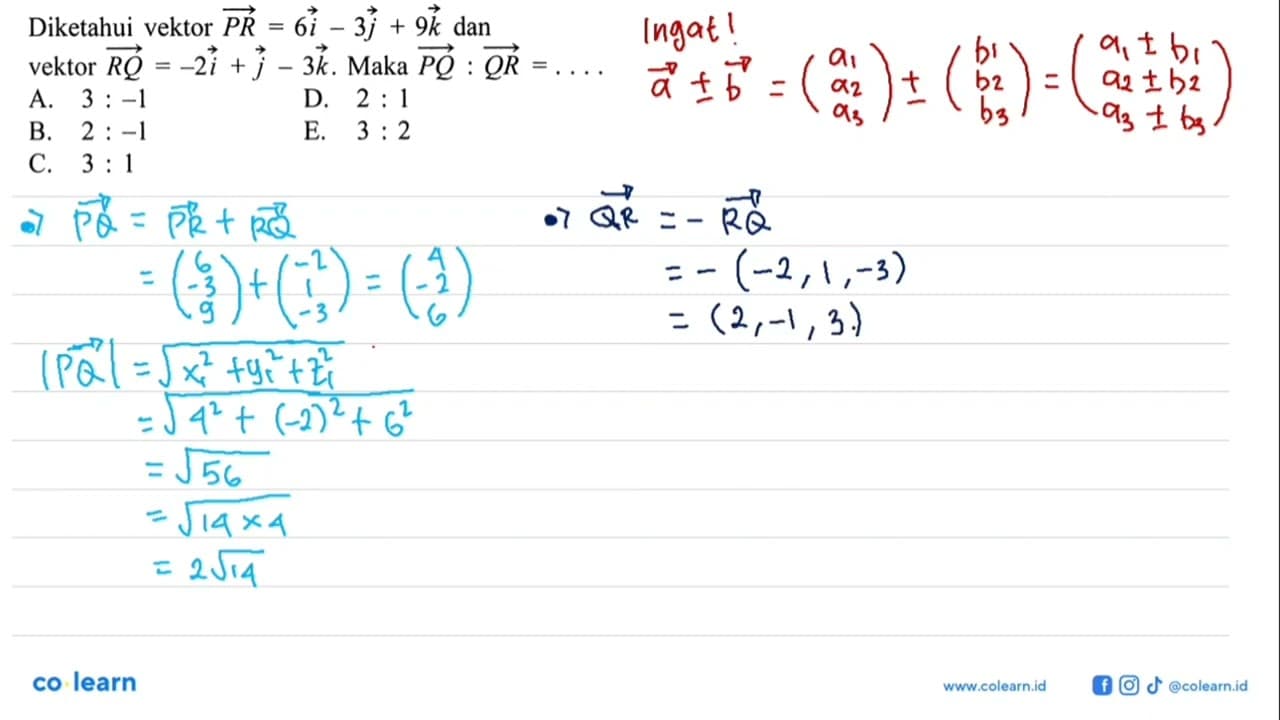 Diketahui vektor \overrightarrow{PR} = 6\vec{i} – 3\vec{j} + 9\vec{k} dan
vektor \overrightarrow{RQ} = –2\vec{i} + \vec{j} – 3\vec{k}. Maka \overrightarrow{PQ} : \overrightarrow{QR} = . . . .
A. 3 : –1 D. 2 : 1
B. 2 : –1 E. 3 : 2
C. 3 : 1
Ingat!
\vec{a} ± \vec{b} = \begin{pmatrix} a_1 \\ a_2 \\ a_3 \end{pmatrix} ± \begin{pmatrix} b_1 \\ b_2 \\ b_3 \end{pmatrix} = \begin{pmatrix} a_1 ± b_1 \\ a_2 ± b_2 \\ a_3 ± b_3 \end{pmatrix}
•> \overrightarrow{PQ} = \overrightarrow{PR} + \overrightarrow{RQ}
= \begin{pmatrix} 6 \\ -3 \\ 9 \end{pmatrix} + \begin{pmatrix} -2 \\ 1 \\ -3 \end{pmatrix} = \begin{pmatrix} 4 \\ -2 \\ 6 \end{pmatrix}
|\overrightarrow{PQ}| = \sqrt{x_1^2 + y_1^2 + z_1^2}
= \sqrt{4^2 + (-2)^2 + 6^2}
= \sqrt{56}
= \sqrt{14 × 4}
= 2\sqrt{14}
•> \overrightarrow{QR} = - \overrightarrow{RQ}
= - (-2, 1, -3)
= (2, -1, 3)
co learn
www.colearn.id
@colearn.id